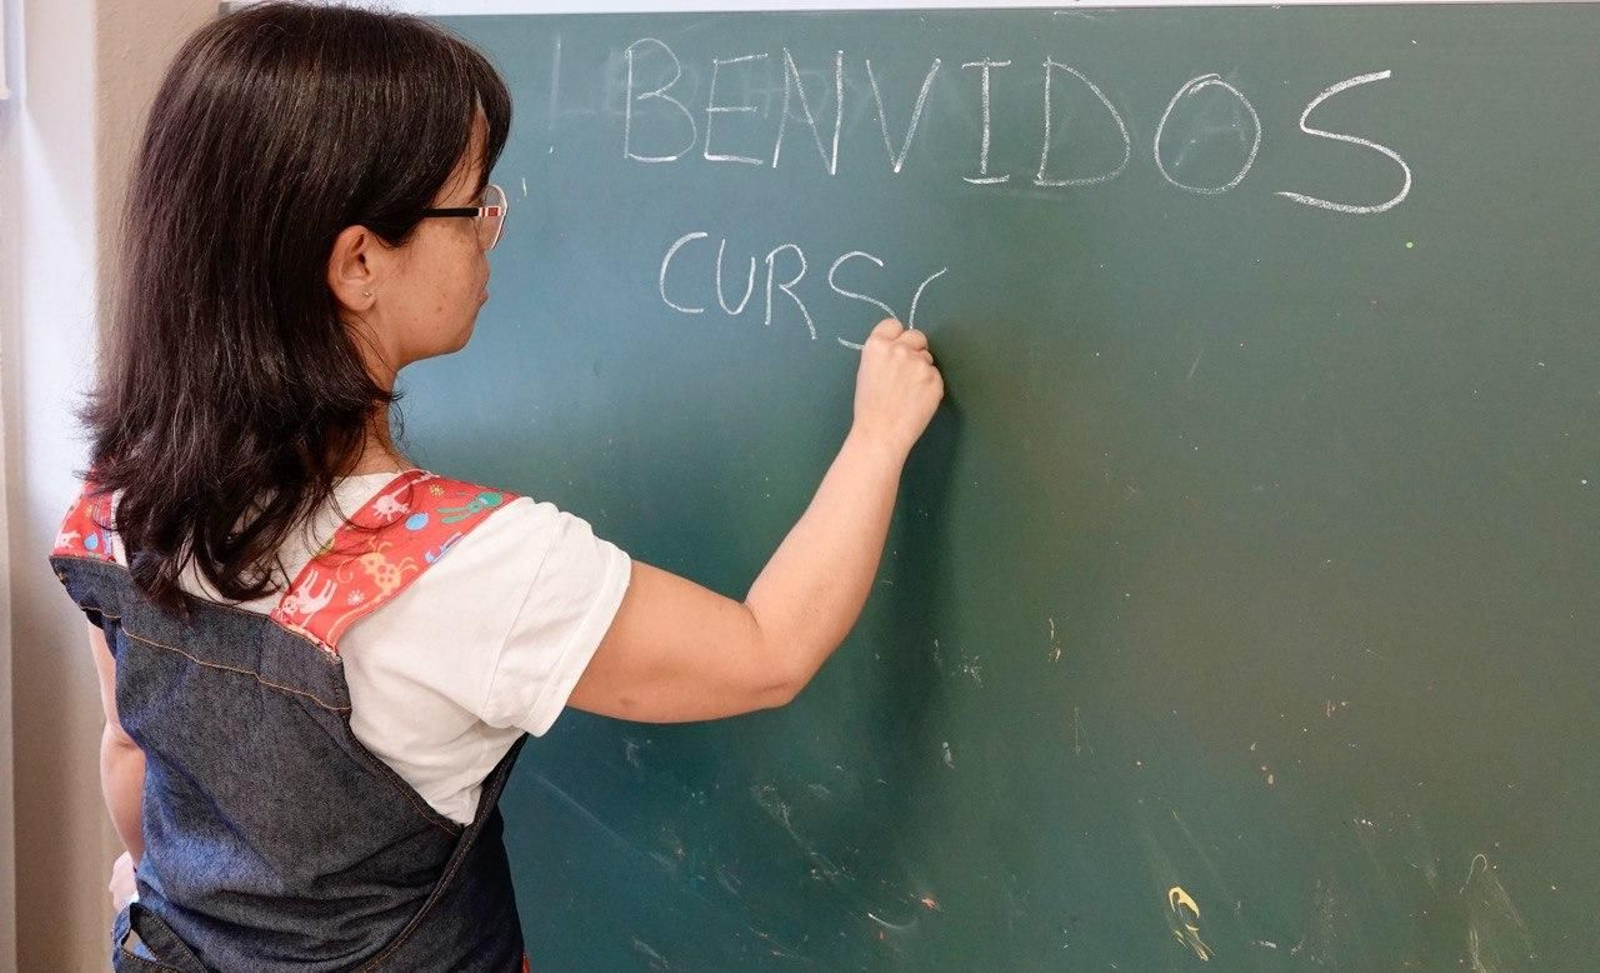 BENVIDOS
CURS